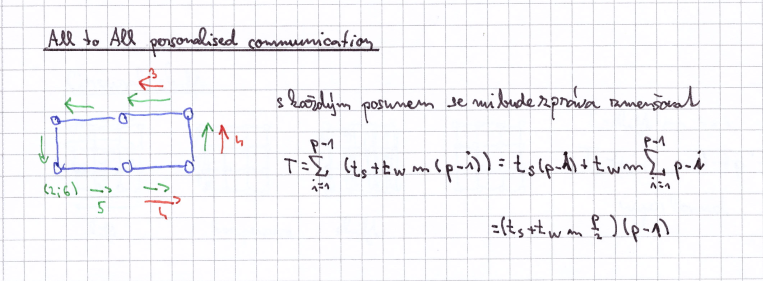 All to All personalised communication
3
s každým posunem se mi bude zpráva zmenšovat
T = \sum_{i=1}^{p-1} (t_s + t_w m (p-i)) = t_s (p-1) + t_w m \sum_{i=1}^{p-1} p-i
4
(2;6)
5
4
= (t_s + t_w m \frac{p}{2}) (p-1)